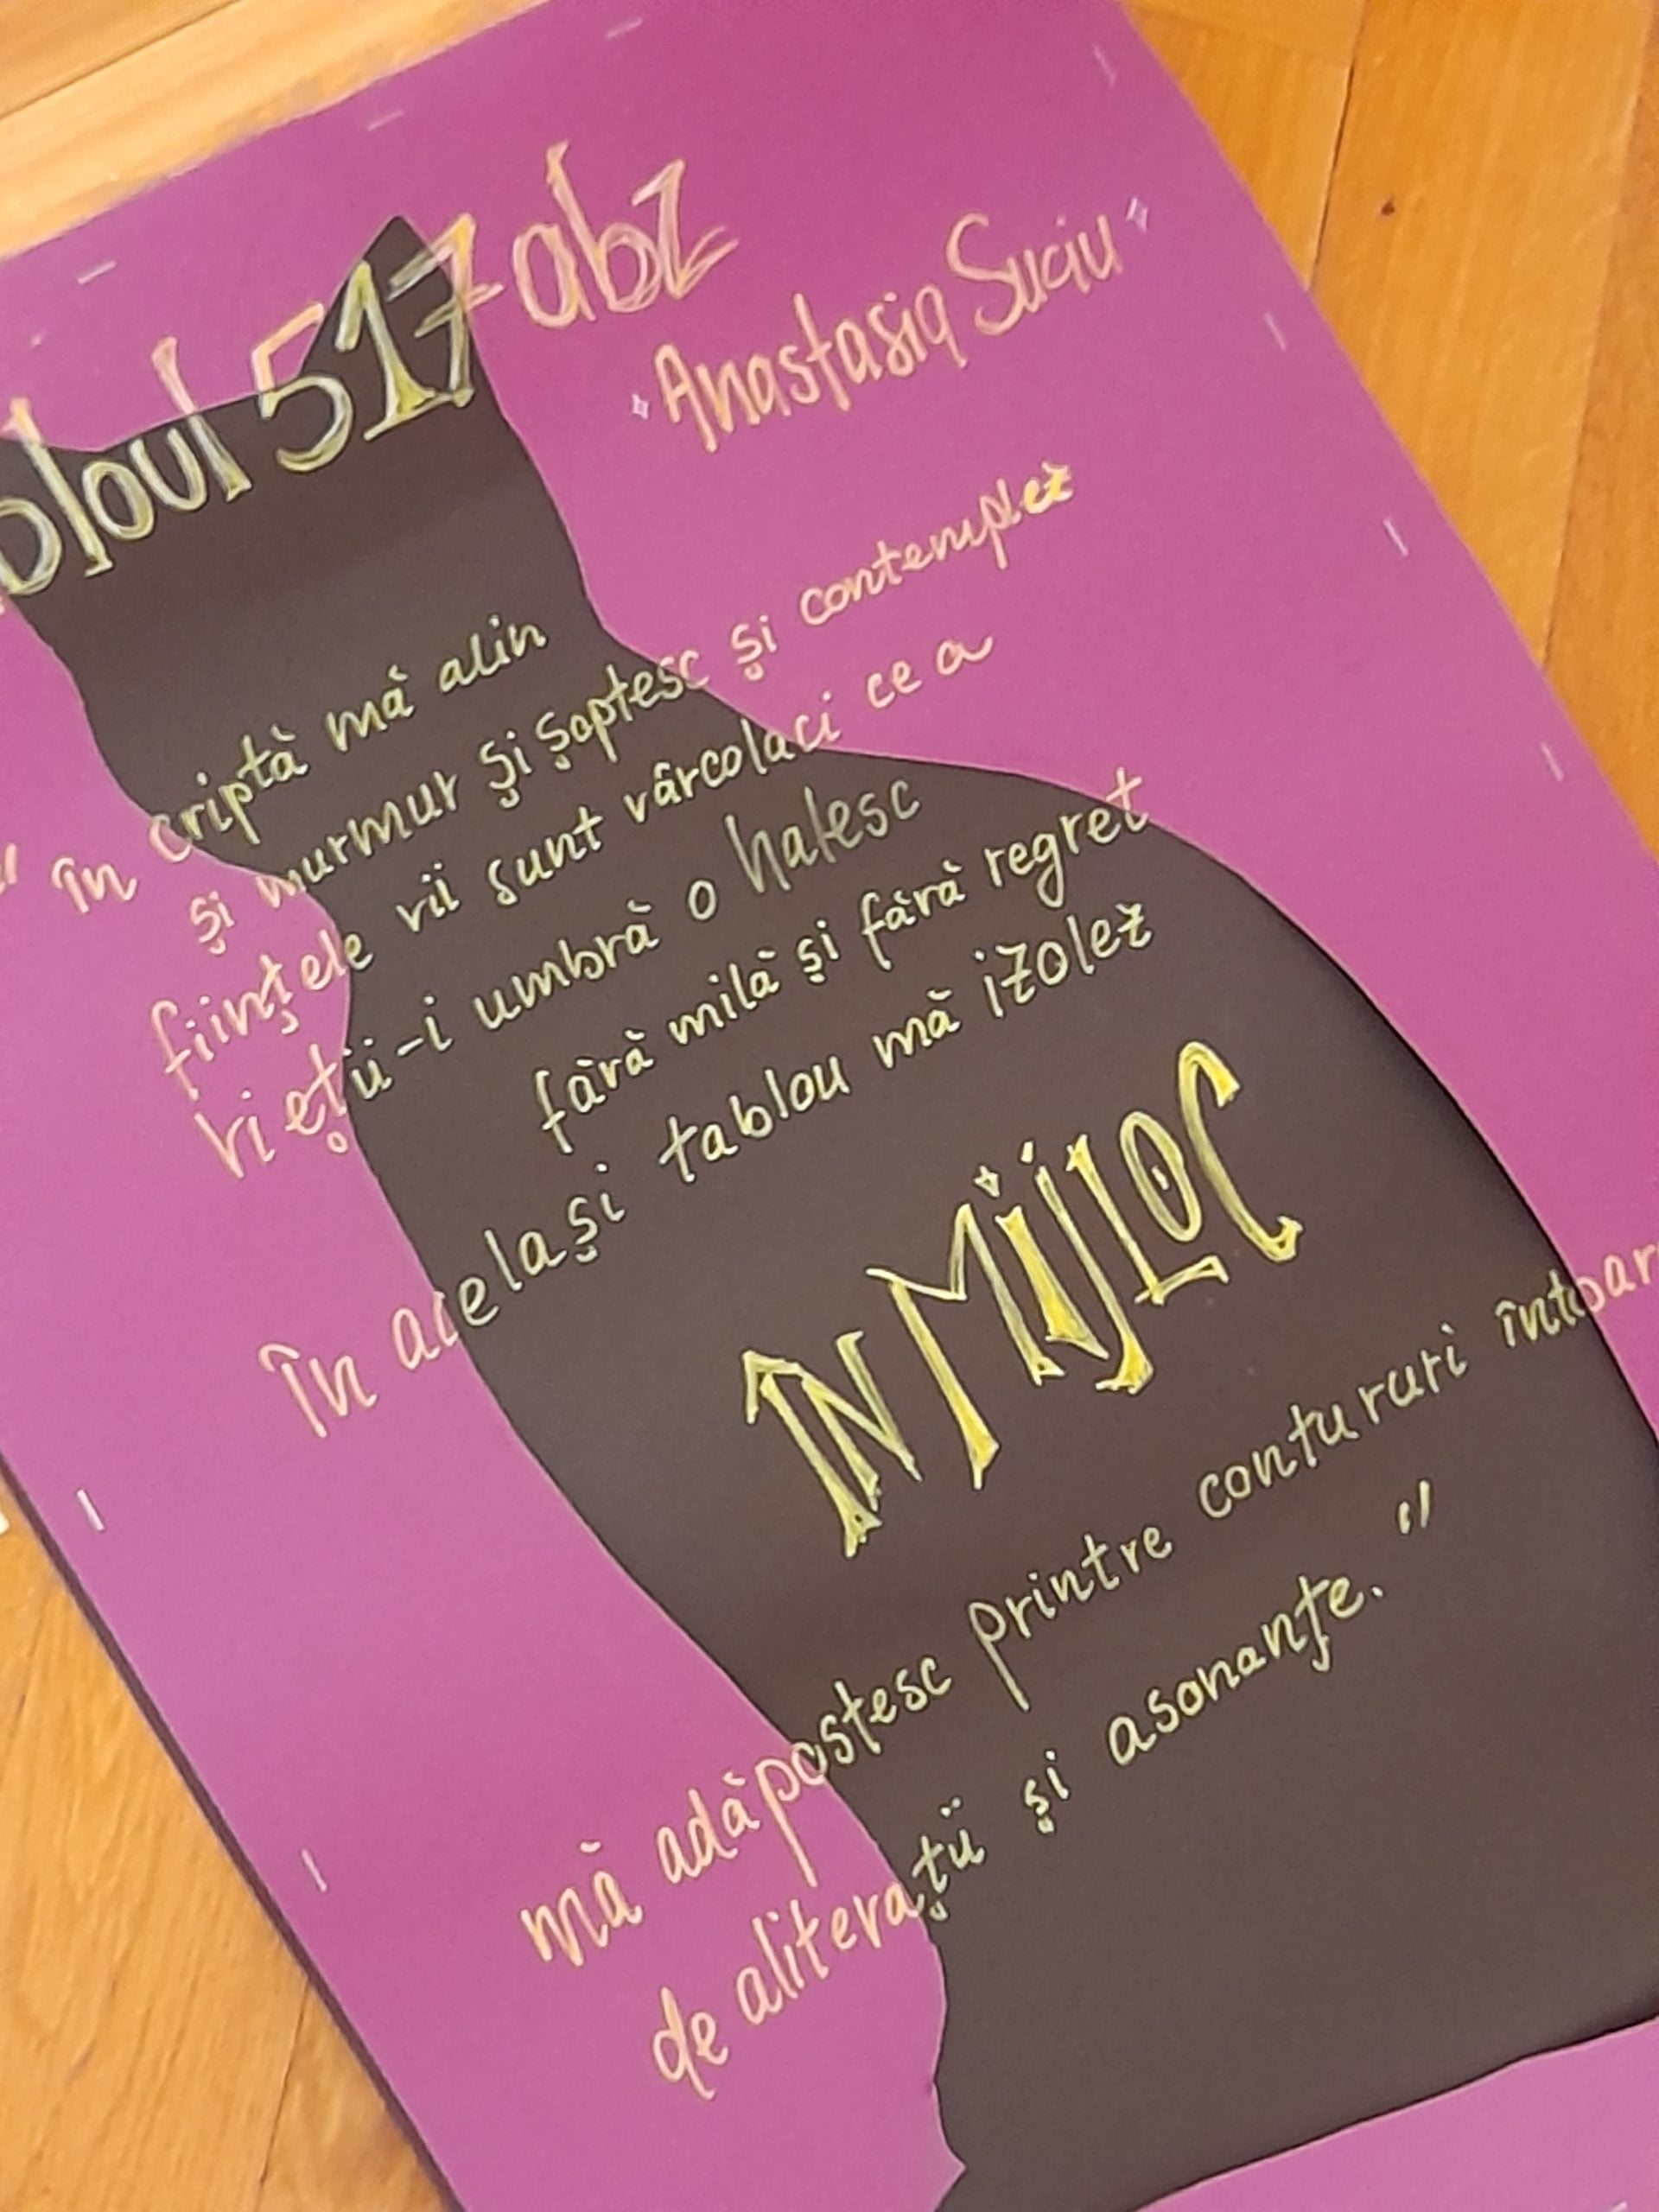 bloul 517abz
Anastasia Suciu
" în criptă mă alin
și murmur și șoptesc și contemplez
ființele vii sunt vârcolaci ce a
vieții-i umbră o hălesc
fără milă și fără regret
în același tablou mă izolez
ÎN MIJLOC
mă adăpostesc printre contururi întoar
de aliterații și asonanțe."